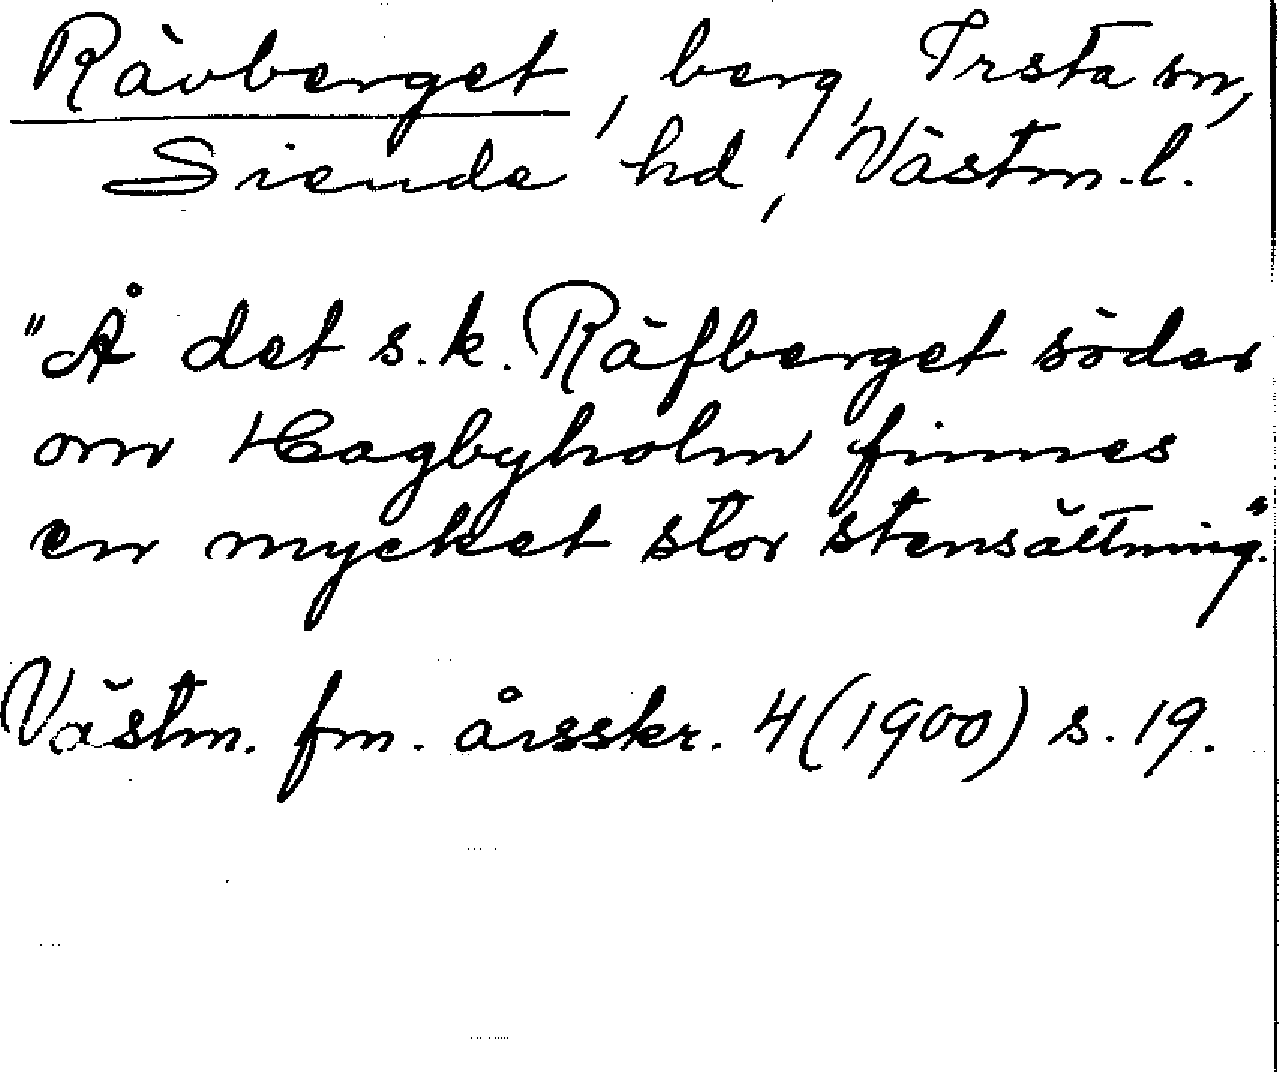 Rävberget, berg, Irsta sn,
Siende hd, Västm. l.
"Å det s.k. Räfberget söder
om Hagbyholm finnes
en mycket stor stensättning."
Västm. fm. årsskr. 4 (1900) s. 19.